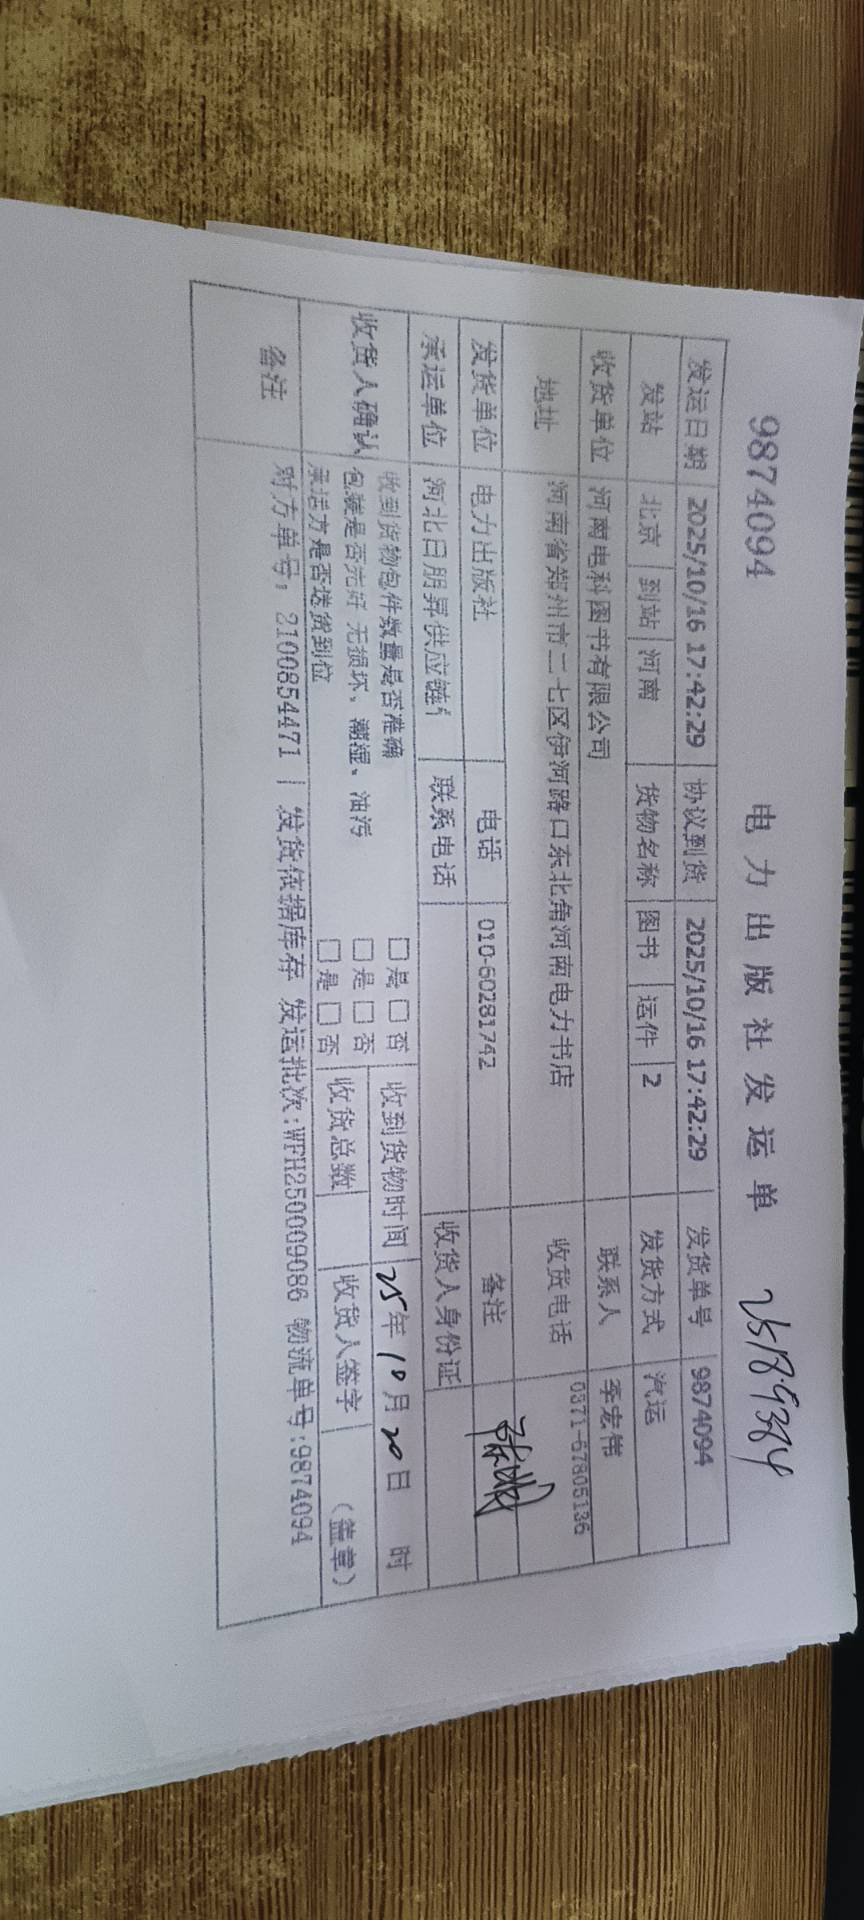 9874094 电力出版社发运单
发运日期 2025/10/16 17:42:29 协议到货 2025/10/16 17:42:29 发货单号 9874094
发站 北京 到站 河南 货物名称 图书 运件 2 发货方式 汽运
收货单位 河南电科图书有限公司 联系人 李宏伟
地址 河南省郑州市二七区伊河路口东北角河南电力书店 收货电话 0371-67805136
发货单位 电力出版社 电话 010-60281742 备注
承运单位 河北日朋昇供应链 联系电话 收货人身份证
收货人确认 收到货物包件数量是否准确 □是 □否 收到货物时间 25年10月20日 时
包装是否完好 无损坏、潮湿、油污 □是 □否
承运方是否送货到位 □是 □否 收货总数 收货人签字 (盖章)
备注 对方单号：2100854471 | 发货依据库存 发运批次:WFH250009086 物流单号:9874094